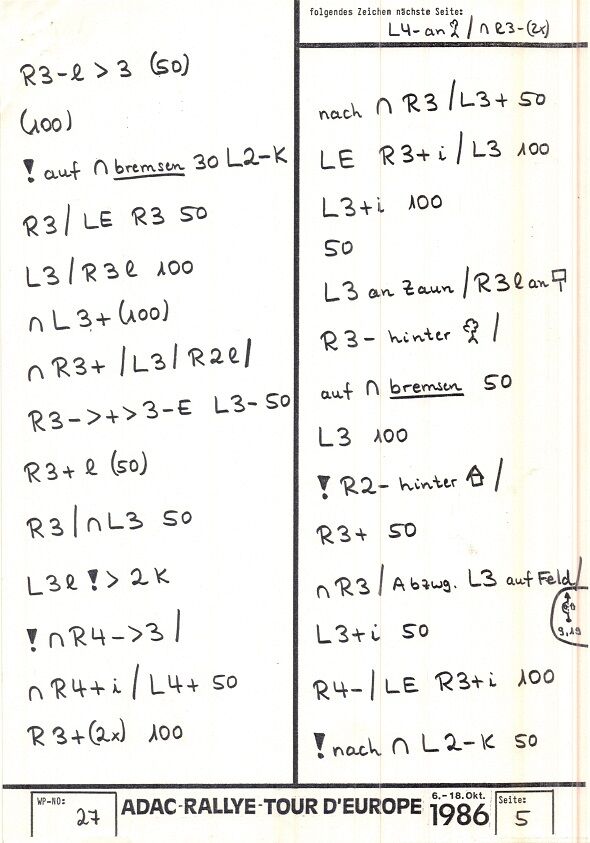 folgendes Zeichen nächste Seite:
L4-an 2 / ∩ l3-(2x)
R3-l > 3 (50)
(100)
! auf ∩ bremsen 30 L2-K
R3/ LE R3 50
L3/R3l 100
∩ L3+ (100)
∩ R3+ /L3/R2l/
R3->+>3-E L3-50
R3+ l (50)
R3/∩L3 50
L3l !> 2K
! ∩R4->3/
∩R4+i/L4+ 50
R3+(2x) 100
nach ∩ R3/L3+ 50
LE R3+i/L3 100
L3+i 100
50
L3 an Zaun /R3l an
R3- hinter /
auf ∩ bremsen 50
L3 100
! R2- hinter /
R3+ 50
∩R3/Abzwg. L3 auf Feld/
L3+i 50
9,19
R4-/LE R3+i 100
! nach ∩ L2-K 50
WP-NO: 27
ADAC-RALLYE-TOUR D'EUROPE
6.-18.Okt.
1986
Seite: 5